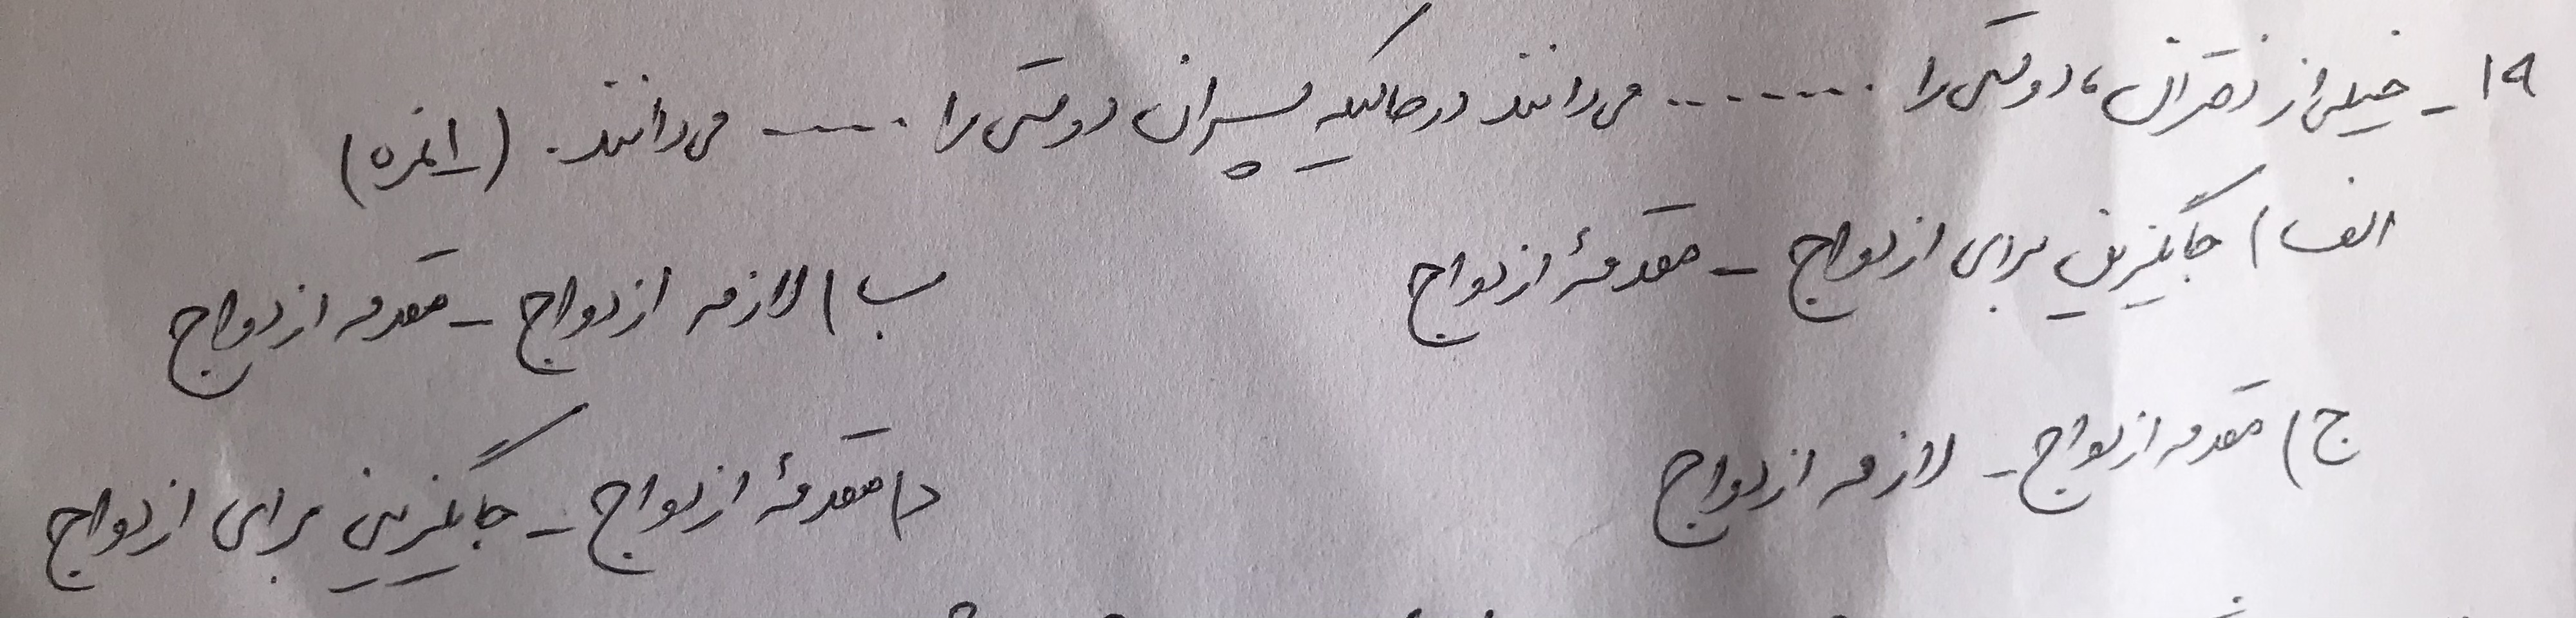 ۱۹- خیلی از دختران، دوستی را ........ می‌دانند درحالیکه پسران دوستی را ...... می‌دانند. (۱نمره)
الف) جایگزینی برای ازدواج - مقدمهٔ ازدواج
ب) لازمه ازدواج - مقدمه ازدواج
ج) مقدمه ازدواج - لازمه ازدواج
د) مقدمهٔ ازدواج - جایگزینی برای ازدواج